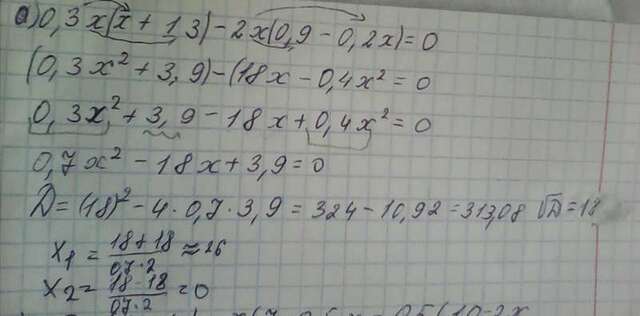 а) 0,3x(x + 13) - 2x(0,9 - 0,2x) = 0
(0,3x² + 3,9) - (18x - 0,4x² = 0
0,3x² + 3,9 - 18x + 0,4x² = 0
0,7x² - 18x + 3,9 = 0
D = (18)² - 4 · 0,7 · 3,9 = 324 - 10,92 = 313,08 √D = 18
x₁ = (18 + 18)/(07 · 2) ≈ 26
x₂ = (18 - 18)/(07 · 2) = 0